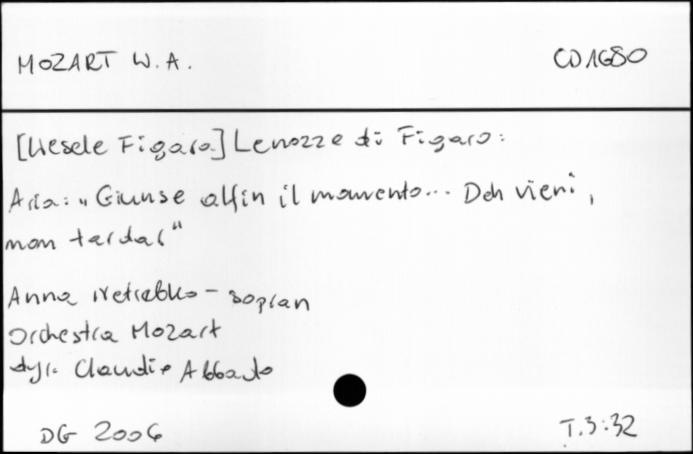 MOZART W.A.
CD 1680
[Wesele Figara] Le nozze di Figaro:
Aria: „Giunse alfin il momento... Deh vieni,
non tardar"
Anna Netrebko – sopran
Orchestra Mozart
dyr. Claudio Abbado
DG 2006
T. 3:32